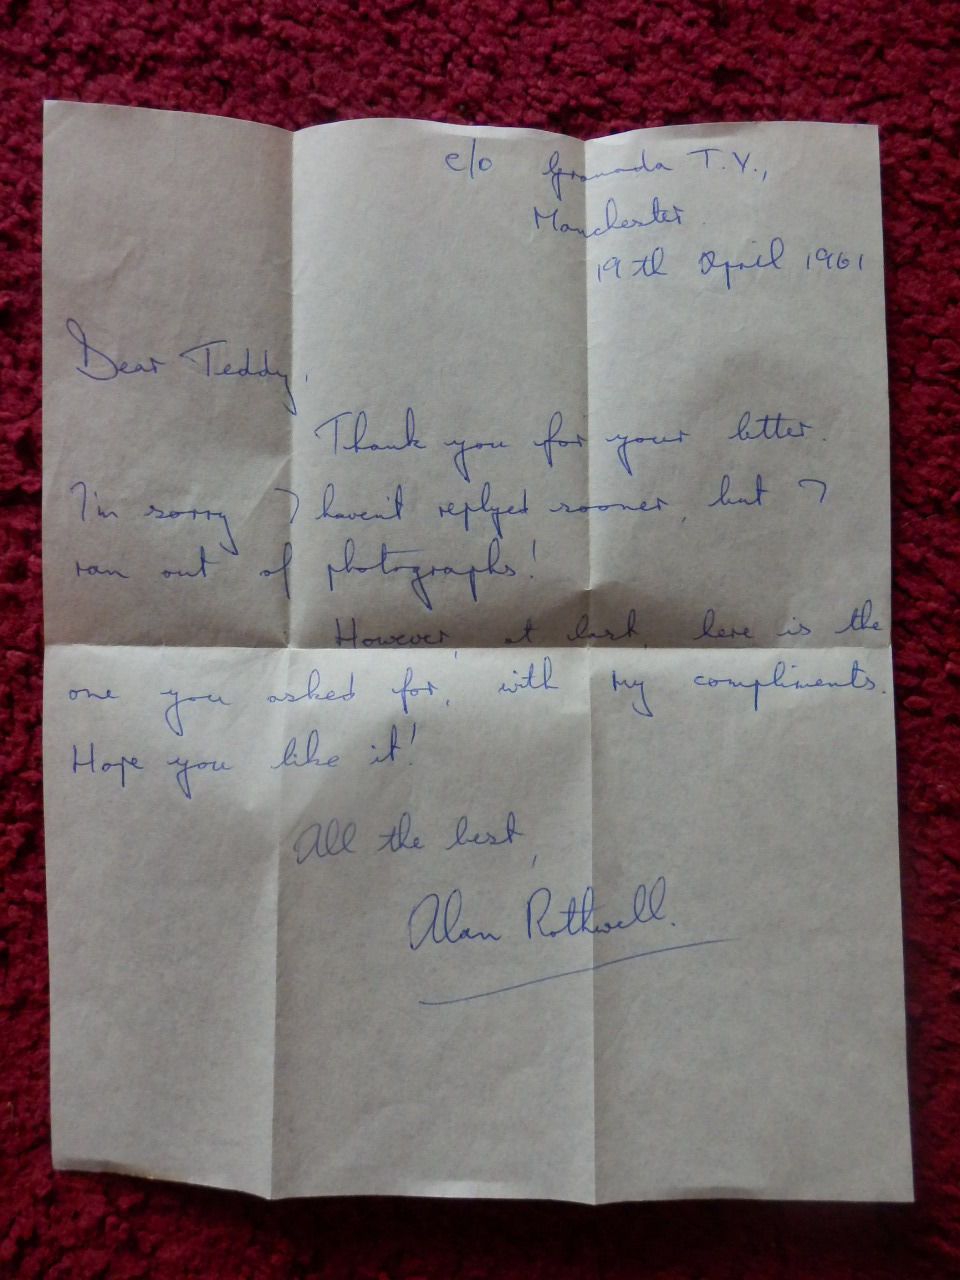 c/o Granada T.V.,
Manchester.
19th April 1961
Dear Teddy,
Thank you for your letter.
I'm sorry I haven't replyed sooner, but I
ran out of photographs!
However, at last, here is the
one you asked for, with my compliments.
Hope you like it!
All the best,
Alan Rothwell.